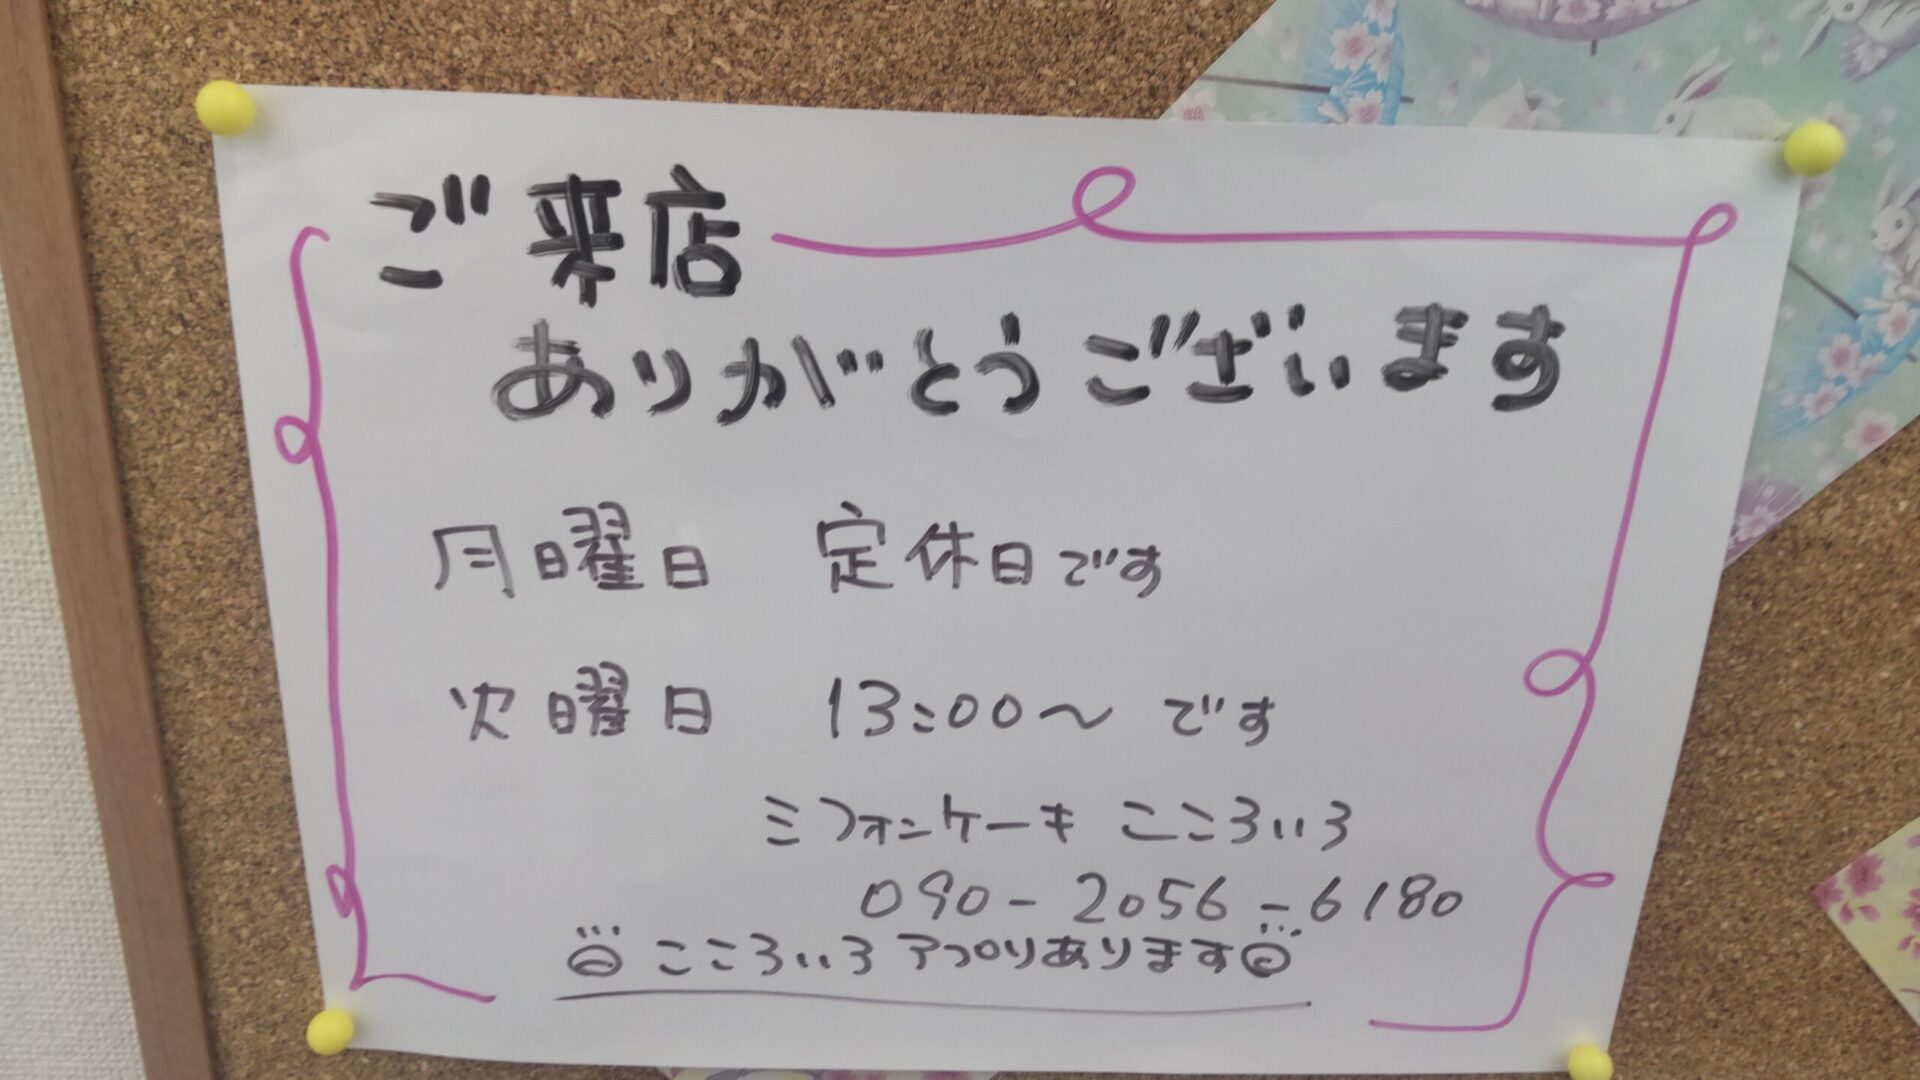 ご来店
ありがとうございます
月曜日 定休日です
火曜日 13:00～ です
シフォンケーキ こころいろ
090-2056-6180
こころいろアプリあります